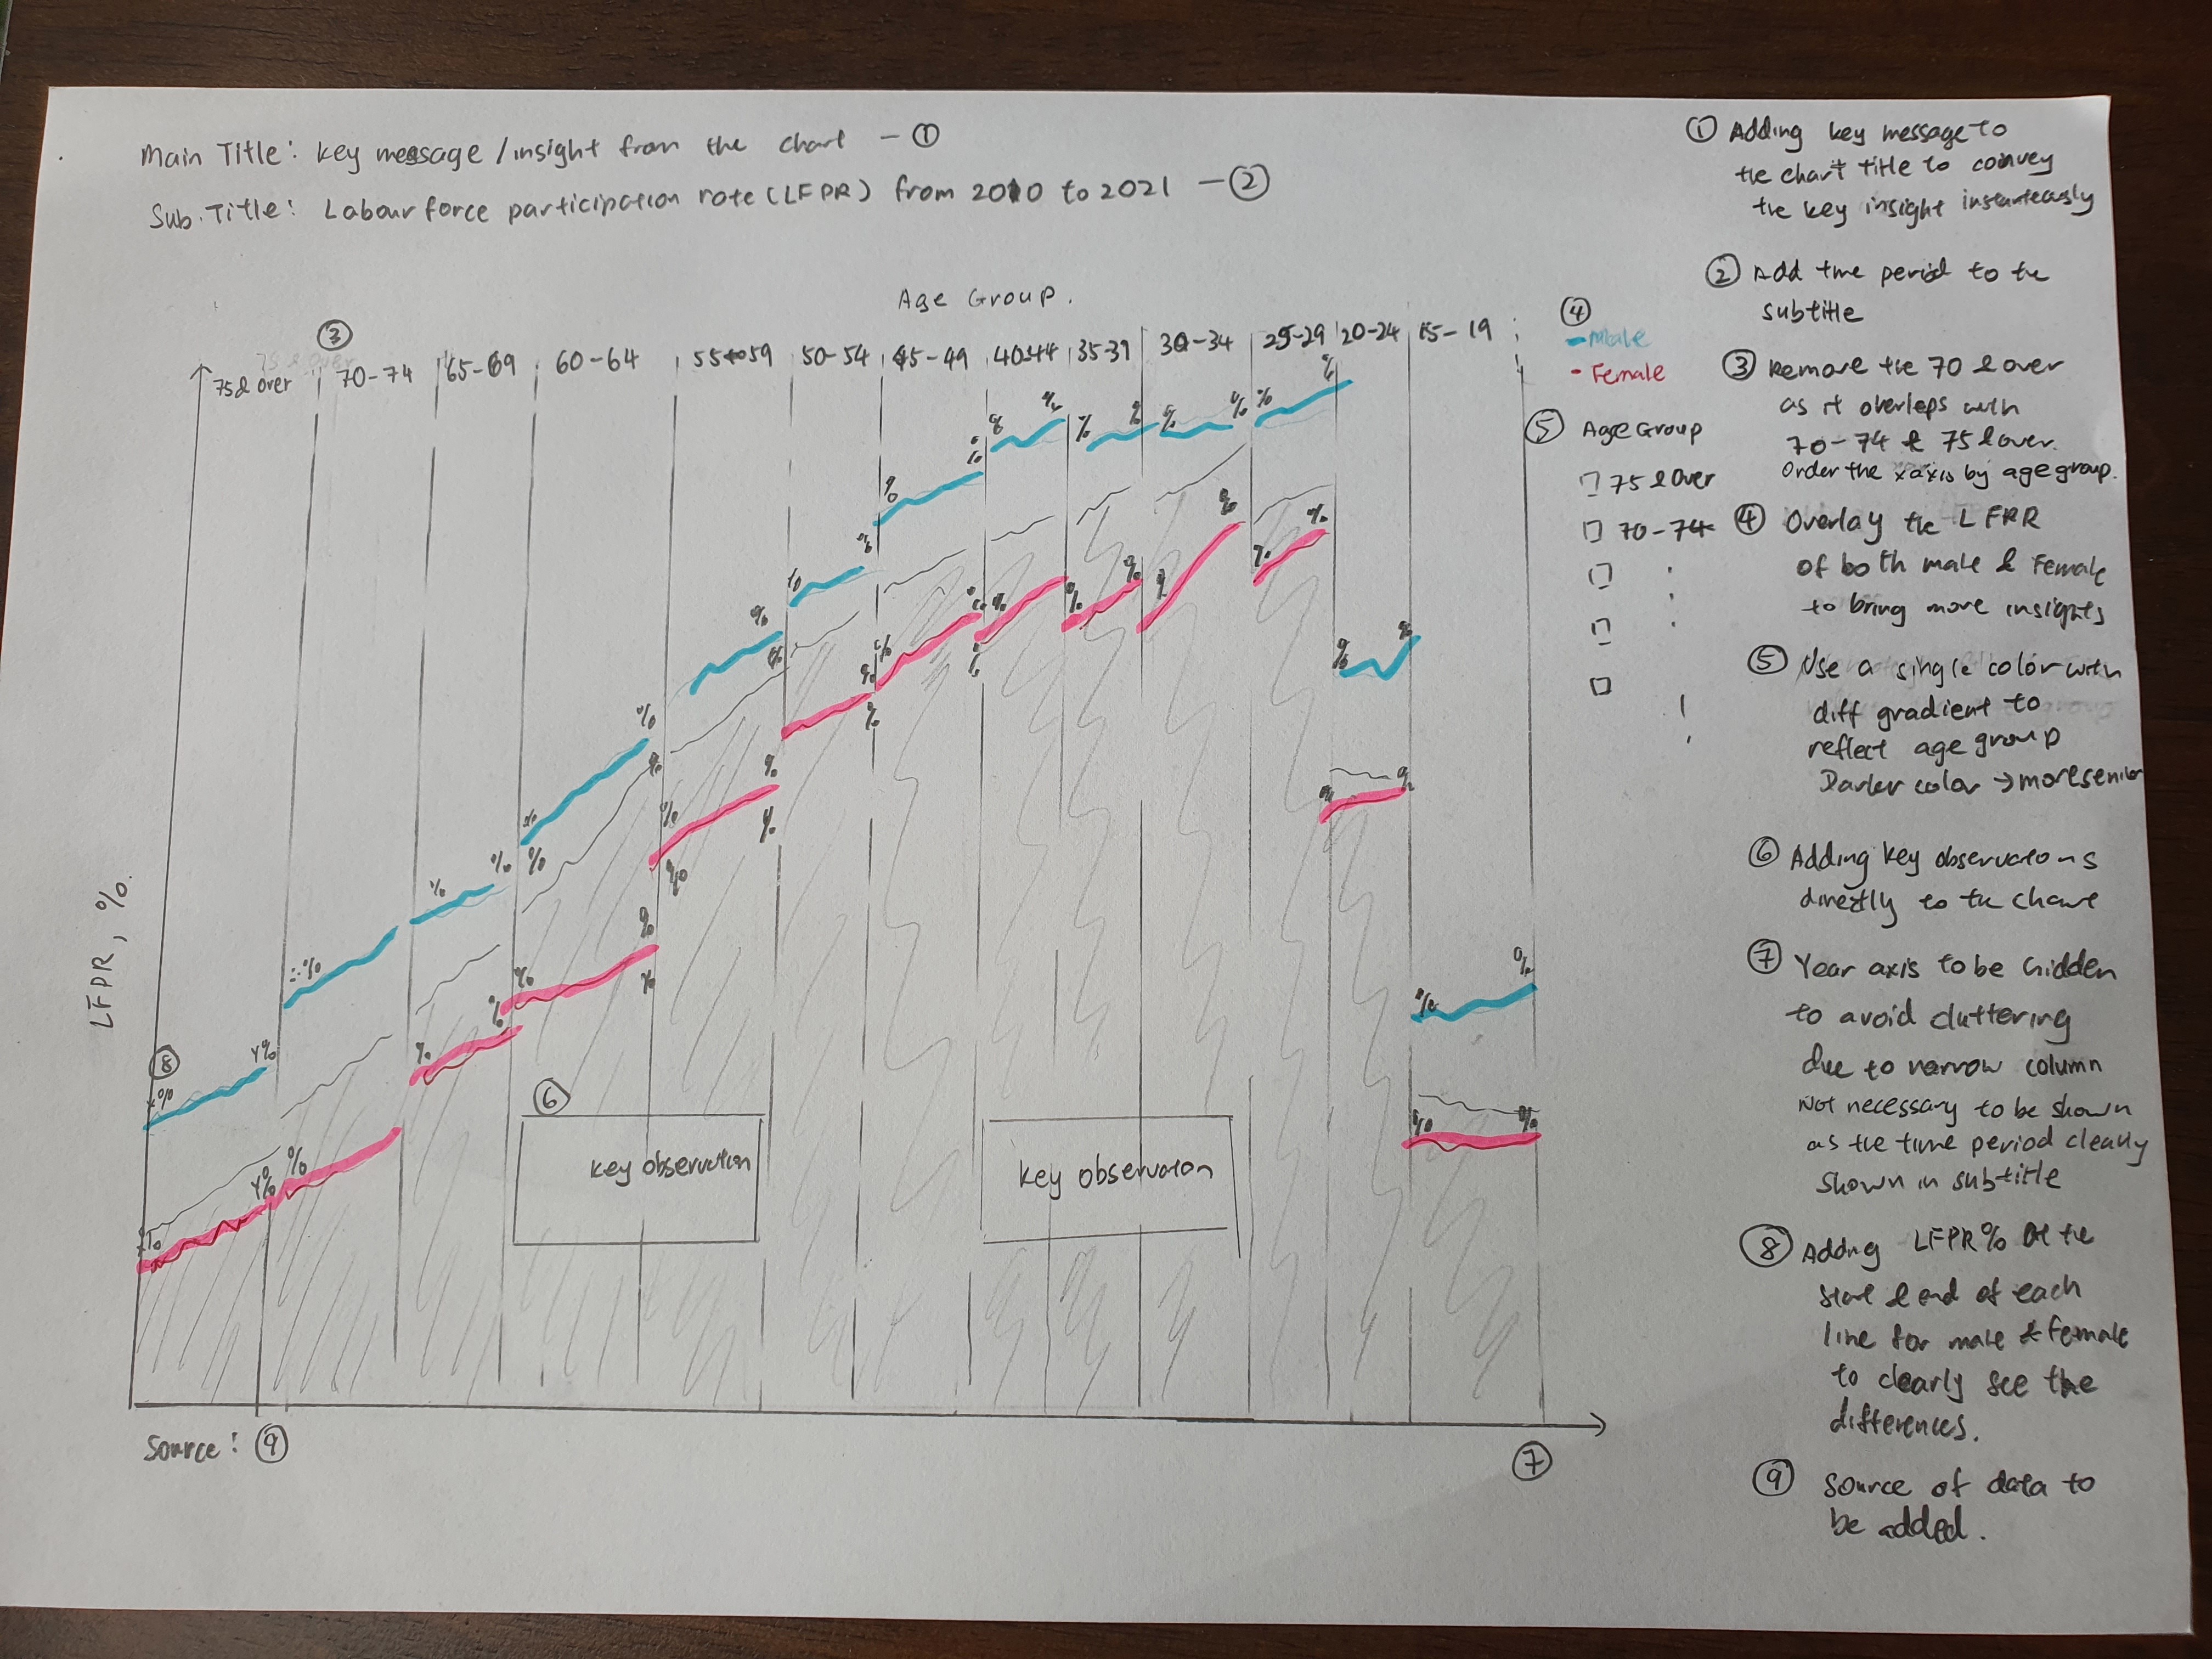 Main Title: Key message / insight from the chart - ①
Sub.Title: Labour force participation rate (LFPR) from 2010 to 2021 - ②
Age Group.
③
75 & over 70-74 65-69 60-64 55 to 59 50-54 45-49 40-44 35-39 30-34 25-29 20-24 15-19
④
- Male
- Female
⑤ Age Group
75 & over
70-74
LFPR, %.
⑧
x% Y%
Y% %
⑥
Key observation
Key observation
Source: ⑨
⑦
① Adding key message to
the chart title to convey
the key insight instanteously
② Add time period to the
subtitle
③ Remove the 70 & over
as it overlaps with
70-74 & 75 & over.
Order the x axis by age group.
④ Overlay the LFPR
of both male & Female
to bring more insights
⑤ Use a single color with
diff gradient to
reflect age group
Darker color → more senior
⑥ Adding key observations
directly to the chart
⑦ Year axis to be hidden
to avoid cluttering
due to narrow column
Not necessary to be shown
as the time period clearly
shown in subtitle
⑧ Adding LFPR% at the
start & end of each
line for male & female
to clearly see the
differences.
⑨ Source of data to
be added.